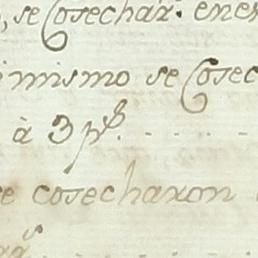 , se Cosechar. enes
imismo se Cosec
à 3 p.s
se cosecharon